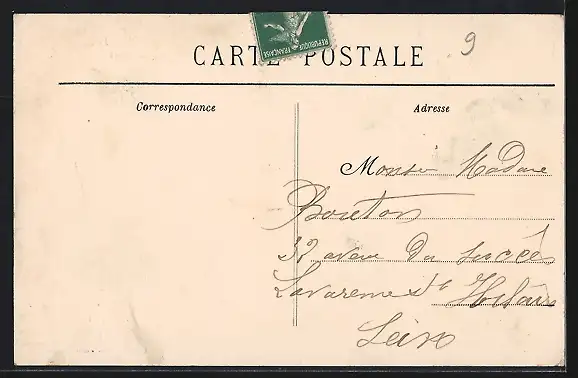 CARTE POSTALE
9
REPUBLIQUE FRANÇAISE
Correspondance
Adresse
Monsi Madame
Bouton
32 avenue du succès
Lavarenne St Hilaire
Seine